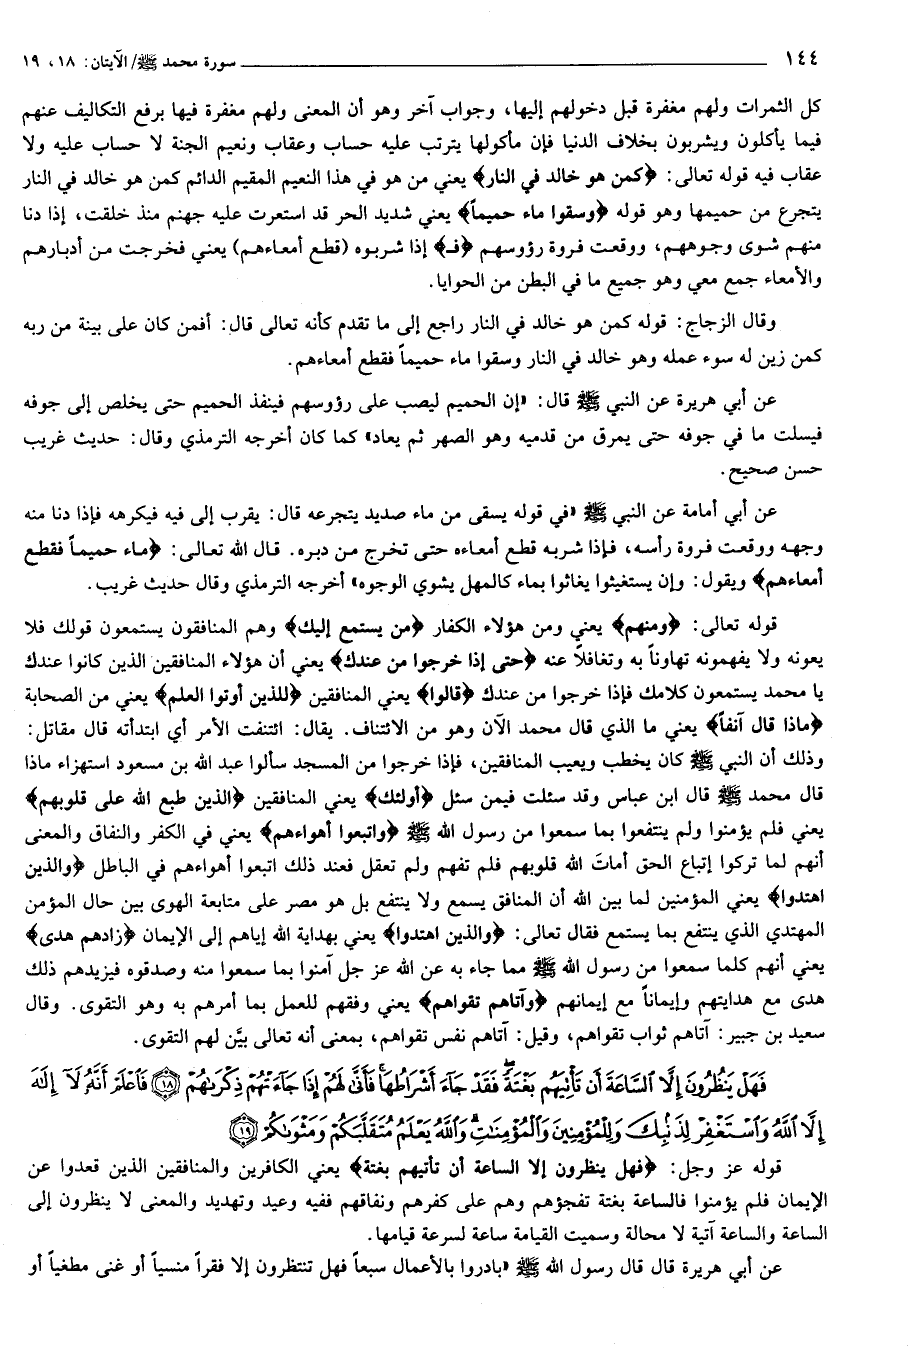 ١٤٤ سورة محمد ﷺ/ الآيتان: ١٨، ١٩
كل الثمرات ولهم مغفرة قبل دخولهم إليها، وجواب آخر وهو أن المعنى ولهم مغفرة فيها برفع التكاليف عنهم
فيما يأكلون ويشربون بخلاف الدنيا فإن مأكولها يترتب عليه حساب وعقاب ونعيم الجنة لا حساب عليه ولا
عقاب فيه قوله تعالى: ﴿كمن هو خالد في النار﴾ يعني من هو في هذا النعيم المقيم الدائم كمن هو خالد في النار
يتجرع من حميمها وهو قوله ﴿وسقوا ماء حميماً﴾ يعني شديد الحر قد استعرت عليه جهنم منذ خلقت، إذا دنا
منهم شوى وجوههم، ووقعت فروة رؤوسهم ﴿فـ﴾ إذا شربوه (قطع أمعاءهم) يعني فخرجت من أدبارهم
والأمعاء جمع معي وهو جميع ما في البطن من الحوايا.
وقال الزجاج: قوله كمن هو خالد في النار راجع إلى ما تقدم كأنه تعالى قال: أفمن كان على بينة من ربه
كمن زين له سوء عمله وهو خالد في النار وسقوا ماء حميماً فقطع أمعاءهم.
عن أبي هريرة عن النبي ﷺ قال: «إن الحميم ليصب على رؤوسهم فينفذ الحميم حتى يخلص إلى جوفه
فيسلت ما في جوفه حتى يمرق من قدميه وهو الصهر ثم يعاد» كما كان أخرجه الترمذي وقال: حديث غريب
حسن صحيح.
عن أبي أمامة عن النبي ﷺ «في قوله يسقى من ماء صديد يتجرعه قال: يقرب إلى فيه فيكرهه فإذا دنا منه
وجهه ووقعت فروة رأسه، فإذا شربه قطع أمعاءه حتى تخرج من دبره. قال الله تعالى: ﴿ماء حميماً فقطع
أمعاءهم﴾ ويقول: وإن يستغيثوا يغاثوا بماء كالمهل يشوي الوجوه» أخرجه الترمذي وقال حديث غريب.
قوله تعالى: ﴿ومنهم﴾ يعني ومن هؤلاء الكفار ﴿من يستمع إليك﴾ وهم المنافقون يستمعون قولك فلا
يعونه ولا يفهمونه تهاوناً به وتغافلاً عنه ﴿حتى إذا خرجوا من عندك﴾ يعني أن هؤلاء المنافقين الذين كانوا عندك
يا محمد يستمعون كلامك فإذا خرجوا من عندك ﴿قالوا﴾ يعني المنافقين ﴿للذين أوتوا العلم﴾ يعني من الصحابة
﴿ماذا قال آنفاً﴾ يعني ما الذي قال محمد الآن وهو من الائتناف. يقال: ائتنفت الأمر أي ابتدأته قال مقاتل:
وذلك أن النبي ﷺ كان يخطب ويعيب المنافقين، فإذا خرجوا من المسجد سألوا عبد الله بن مسعود استهزاء ماذا
قال محمد ﷺ قال ابن عباس وقد سئلت فيمن سئل ﴿أولئك﴾ يعني المنافقين ﴿الذين طبع الله على قلوبهم﴾
يعني فلم يؤمنوا ولم ينتفعوا بما سمعوا من رسول الله ﷺ ﴿واتبعوا أهواءهم﴾ يعني في الكفر والنفاق والمعنى
أنهم لما تركوا إتباع الحق أماتَ الله قلوبهم فلم تفهم ولم تعقل فعند ذلك اتبعوا أهواءهم في الباطل ﴿والذين
اهتدوا﴾ يعني المؤمنين لما بين الله أن المنافق يسمع ولا ينتفع بل هو مصر على متابعة الهوى بين حال المؤمن
المهتدي الذي ينتفع بما يستمع فقال تعالى: ﴿والذين اهتدوا﴾ يعني بهداية الله إياهم إلى الإيمان ﴿زادهم هدى﴾
يعني أنهم كلما سمعوا من رسول الله ﷺ مما جاء به عن الله عز جل آمنوا بما سمعوا منه وصدقوه فيزيدهم ذلك
هدى مع هدايتهم وإيماناً مع إيمانهم ﴿وآتاهم تقواهم﴾ يعني وفقهم للعمل بما أمرهم به وهو التقوى. وقال
سعيد بن جبير: آتاهم ثواب تقواهم، وقيل: آتاهم نفس تقواهم، بمعنى أنه تعالى بيَّن لهم التقوى.
فَهَلْ يَنظُرُونَ إِلَّا ٱلسَّاعَةَ أَن تَأْتِيَهُم بَغْتَةً ۖ فَقَدْ جَآءَ أَشْرَاطُهَا ۚ فَأَنَّىٰ لَهُمْ إِذَا جَآءَتْهُمْ ذِكْرَىٰهُمْ ١٨ فَٱعْلَمْ أَنَّهُۥ لَآ إِلَٰهَ
إِلَّا ٱللَّهُ وَٱسْتَغْفِرْ لِذَنۢبِكَ وَلِلْمُؤْمِنِينَ وَٱلْمُؤْمِنَٰتِ ۗ وَٱللَّهُ يَعْلَمُ مُتَقَلَّبَكُمْ وَمَثْوَىٰكُمْ ١٩
قوله عز وجل: ﴿فهل ينظرون إلا الساعة أن تأتيهم بغتة﴾ يعني الكافرين والمنافقين الذين قعدوا عن
الإيمان فلم يؤمنوا فالساعة بغتة تفجؤهم وهم على كفرهم ونفاقهم ففيه وعيد وتهديد والمعنى لا ينظرون إلى
الساعة والساعة آتية لا محالة وسميت القيامة ساعة لسرعة قيامها.
عن أبي هريرة قال قال رسول الله ﷺ «بادروا بالأعمال سبعاً فهل تنتظرون إلا فقراً منسياً أو غنى مطغياً أو